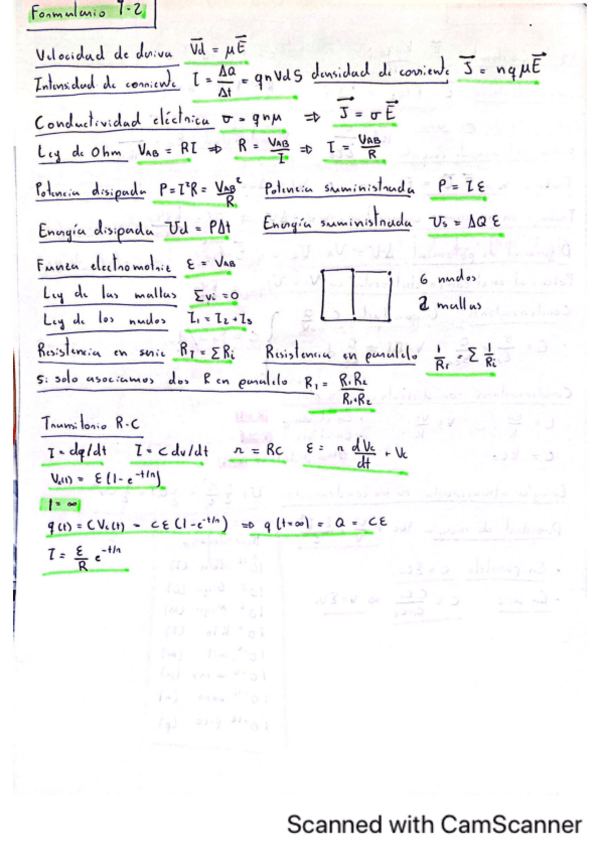 Formulario T-2
Velocidad de deriva Vd = μE
Intensidad de corriente I = ΔQ/Δt = qnVdS densidad de corriente J = nqμE
Conductividad eléctrica σ = qnμ ⇒ J = σE
Ley de Ohm VAB = RI ⇒ R = VAB/I ⇒ I = VAB/R
Potencia disipada P = I²R = VAB²/R Potencia suministrada P = Iε
Energía disipada Ud = PΔt Energía suministrada Us = ΔQ ε
Fuerza electromotriz ε = VAB
Ley de las mallas Σvi = 0
6 nudos
Ley de los nudos I1 = I2 + I3
2 mallas
Resistencia en serie RT = ΣRi Resistencia en paralelo 1/RT = Σ 1/Ri
Si solo asociamos dos R en paralelo RT = R1R2/R1+R2
Transitorio R-C
I = dq/dt I = C dv/dt τ = RC ε = τ dVc/dt + Vc
Vc(t) = ε(1-e^-t/τ)
t = ∞
q(t) = CVc(t) = Cε(1-e^-t/τ) ⇒ q(t=∞) = Q = Cε
I = ε/R e^-t/τ
Scanned with CamScanner